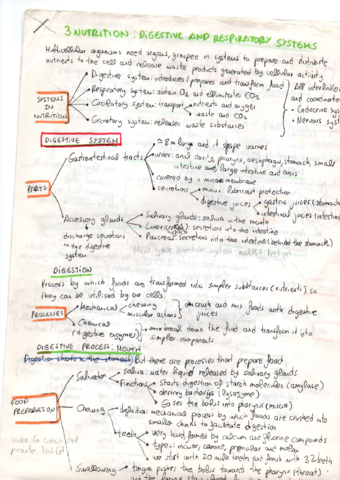 3 NUTRITION: DIGESTIVE AND RESPIRATORY SYSTEMS
Multicellular organisms need organs, grouped in systems to prepare and distribute
nutrients to the cell and release waste products generated by cellular activity
SYSTEMS IN NUTRITION
Digestive system: introduces, prepares and transform food
Respiratory System: obtain O2 and eliminates CO2
Circulatory system: transport nutrients and oxygen
waste and CO2
Excretory system: releases waste substances
All interlinked
and coordinated
Endocrine
Nervous
DIGESTIVE SYSTEM
PARTS
Gastrointestinal tracts
≈ 8 m large and it shape varies
oral cavity, pharynx, oesophagus, stomach, small
intestine and large intestine and anus
covered by a mucus membrane
secretions mucus: lubricant protection
digestive juices gastric juices (stomach)
intestinal juices (intestine
Accessory glands
discharge secretions
in the digestive
system
Salivary glands: saliva in the mouth
Liver secretions into the intestine
Pancreas: secretions into the intestine (behind the stomach)
DIGESTION
Process by which foods are transformed into simpler substances (nutrients) so
they can be utilised by our cells.
PROCESSES
Mechanical chewing
muscular actions
and mix foods with digestive
juices
Chemical
(digestive enzymes)
break down the food and transform it into
simpler components
DIGESTIVE PROCESS: MOUTH
Digestion starts in the stomach, but there are processes that prepare food
FOOD PREPARATION
Salivation
saliva: water liquid released by salivary glands
Functions starts digestion of starch molecules (amylase)
destroy bacteria (lysozyme)
bolus into pharynx (mucin)
Chewing
definition: mechanical process by which foods are divided into
smaller chunks to facilitate digestion
teeth
very hard, formed by calcium and fluorine compounds
types: incisor, canine, premolar and molar
we start with 20 milk teeth and finish with 32 teeth
Swallowing
tongue pushes the bolus towards the pharynx (throat)